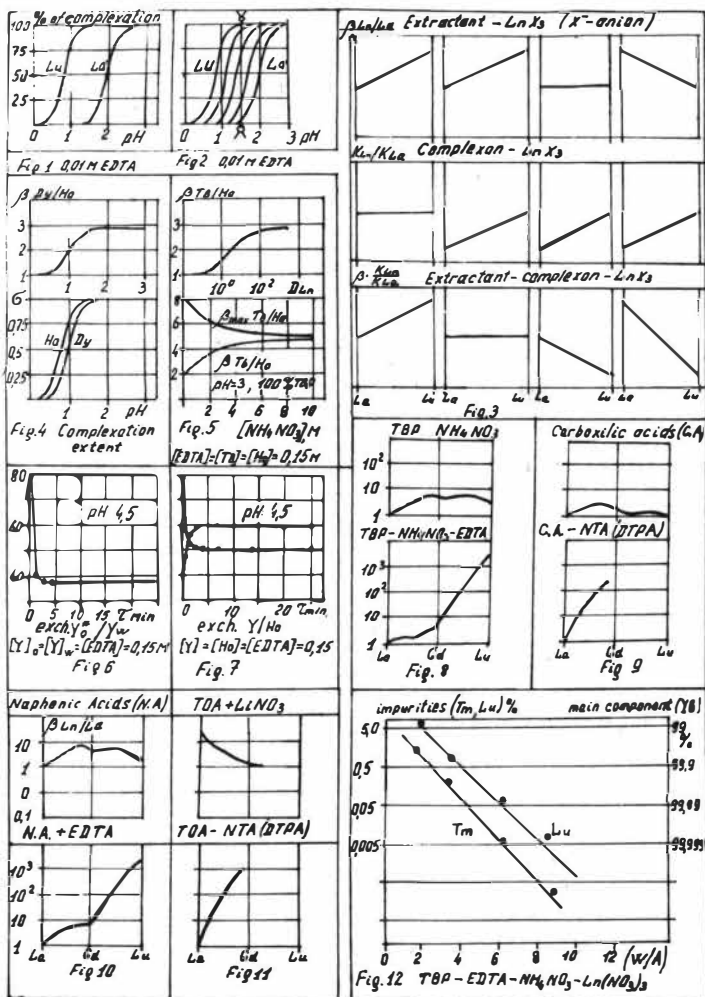 % of complexation
100
75
50
25
Lu
La
0
1
2
pH
Fig 1 0,01 M EDTA
Lu
La
1
2
3 pH
Fig 2 0,01 M EDTA
β Ln/La Extractant - LnX₃ (X⁻-anion)
KLn/KLa Complexon - LnX₃
β· KLn/KLa Extractant-complexon-LnX₃
La Lu La Lu La Lu La Lu
Fig.3
β Dy/Ho
3
2
1
0 1 2 3
G
0,75
0,5
0,25
Ho
Dy
1 2 pH
Fig.4 Complexation
extent
β Tb/Ho
3
2
1
10⁰ 10² DLn
8
6
4
2
βmax Tb/Ho
β Tb/Ho
pH=3, 100% TBP
0 2 4 6 8 10
Fig.5 [NH₄NO₃],M
[EDTA]=[Tb]=[Ho]=0,15M
80
60
40
pH 4,5
0 10 20 τ min
exch. Y°o/Yw
[Y]o=[Y]w=[EDTA]=0,15M
Fig 6
pH 4,5
0 10 20 τ min.
exch. Y/Ho
[Y]=[Ho]=[EDTA]=0,15
Fig. 7
TBP NH₄NO₃
10²
10
1
TBP-NH₄NO₃-EDTA
10³
10²
10
1
La Gd Lu
Fig. 8
Carboxilic acids (C.A)
C.A. - NTA (DTPA)
La Gd Lu
Fig 9
Naphenic Acids (N.A)
β Ln/La
10
1
0
0,1
N.A. + EDTA
10³
10²
10
1
La Gd Lu
Fig 10
TOA + LiNO₃
TOA - NTA (DTPA)
La Gd Lu
Fig 11
impurities (Tm, Lu) % main component (Yb)
5,0
0,5
0,05
0,005
99
%
99,9
99,99
99,999
Tm
Lu
0 2 4 6 8 10 12 (W/A)
Fig.12 TBP-EDTA-NH₄NO₃-Ln(NO₃)₃